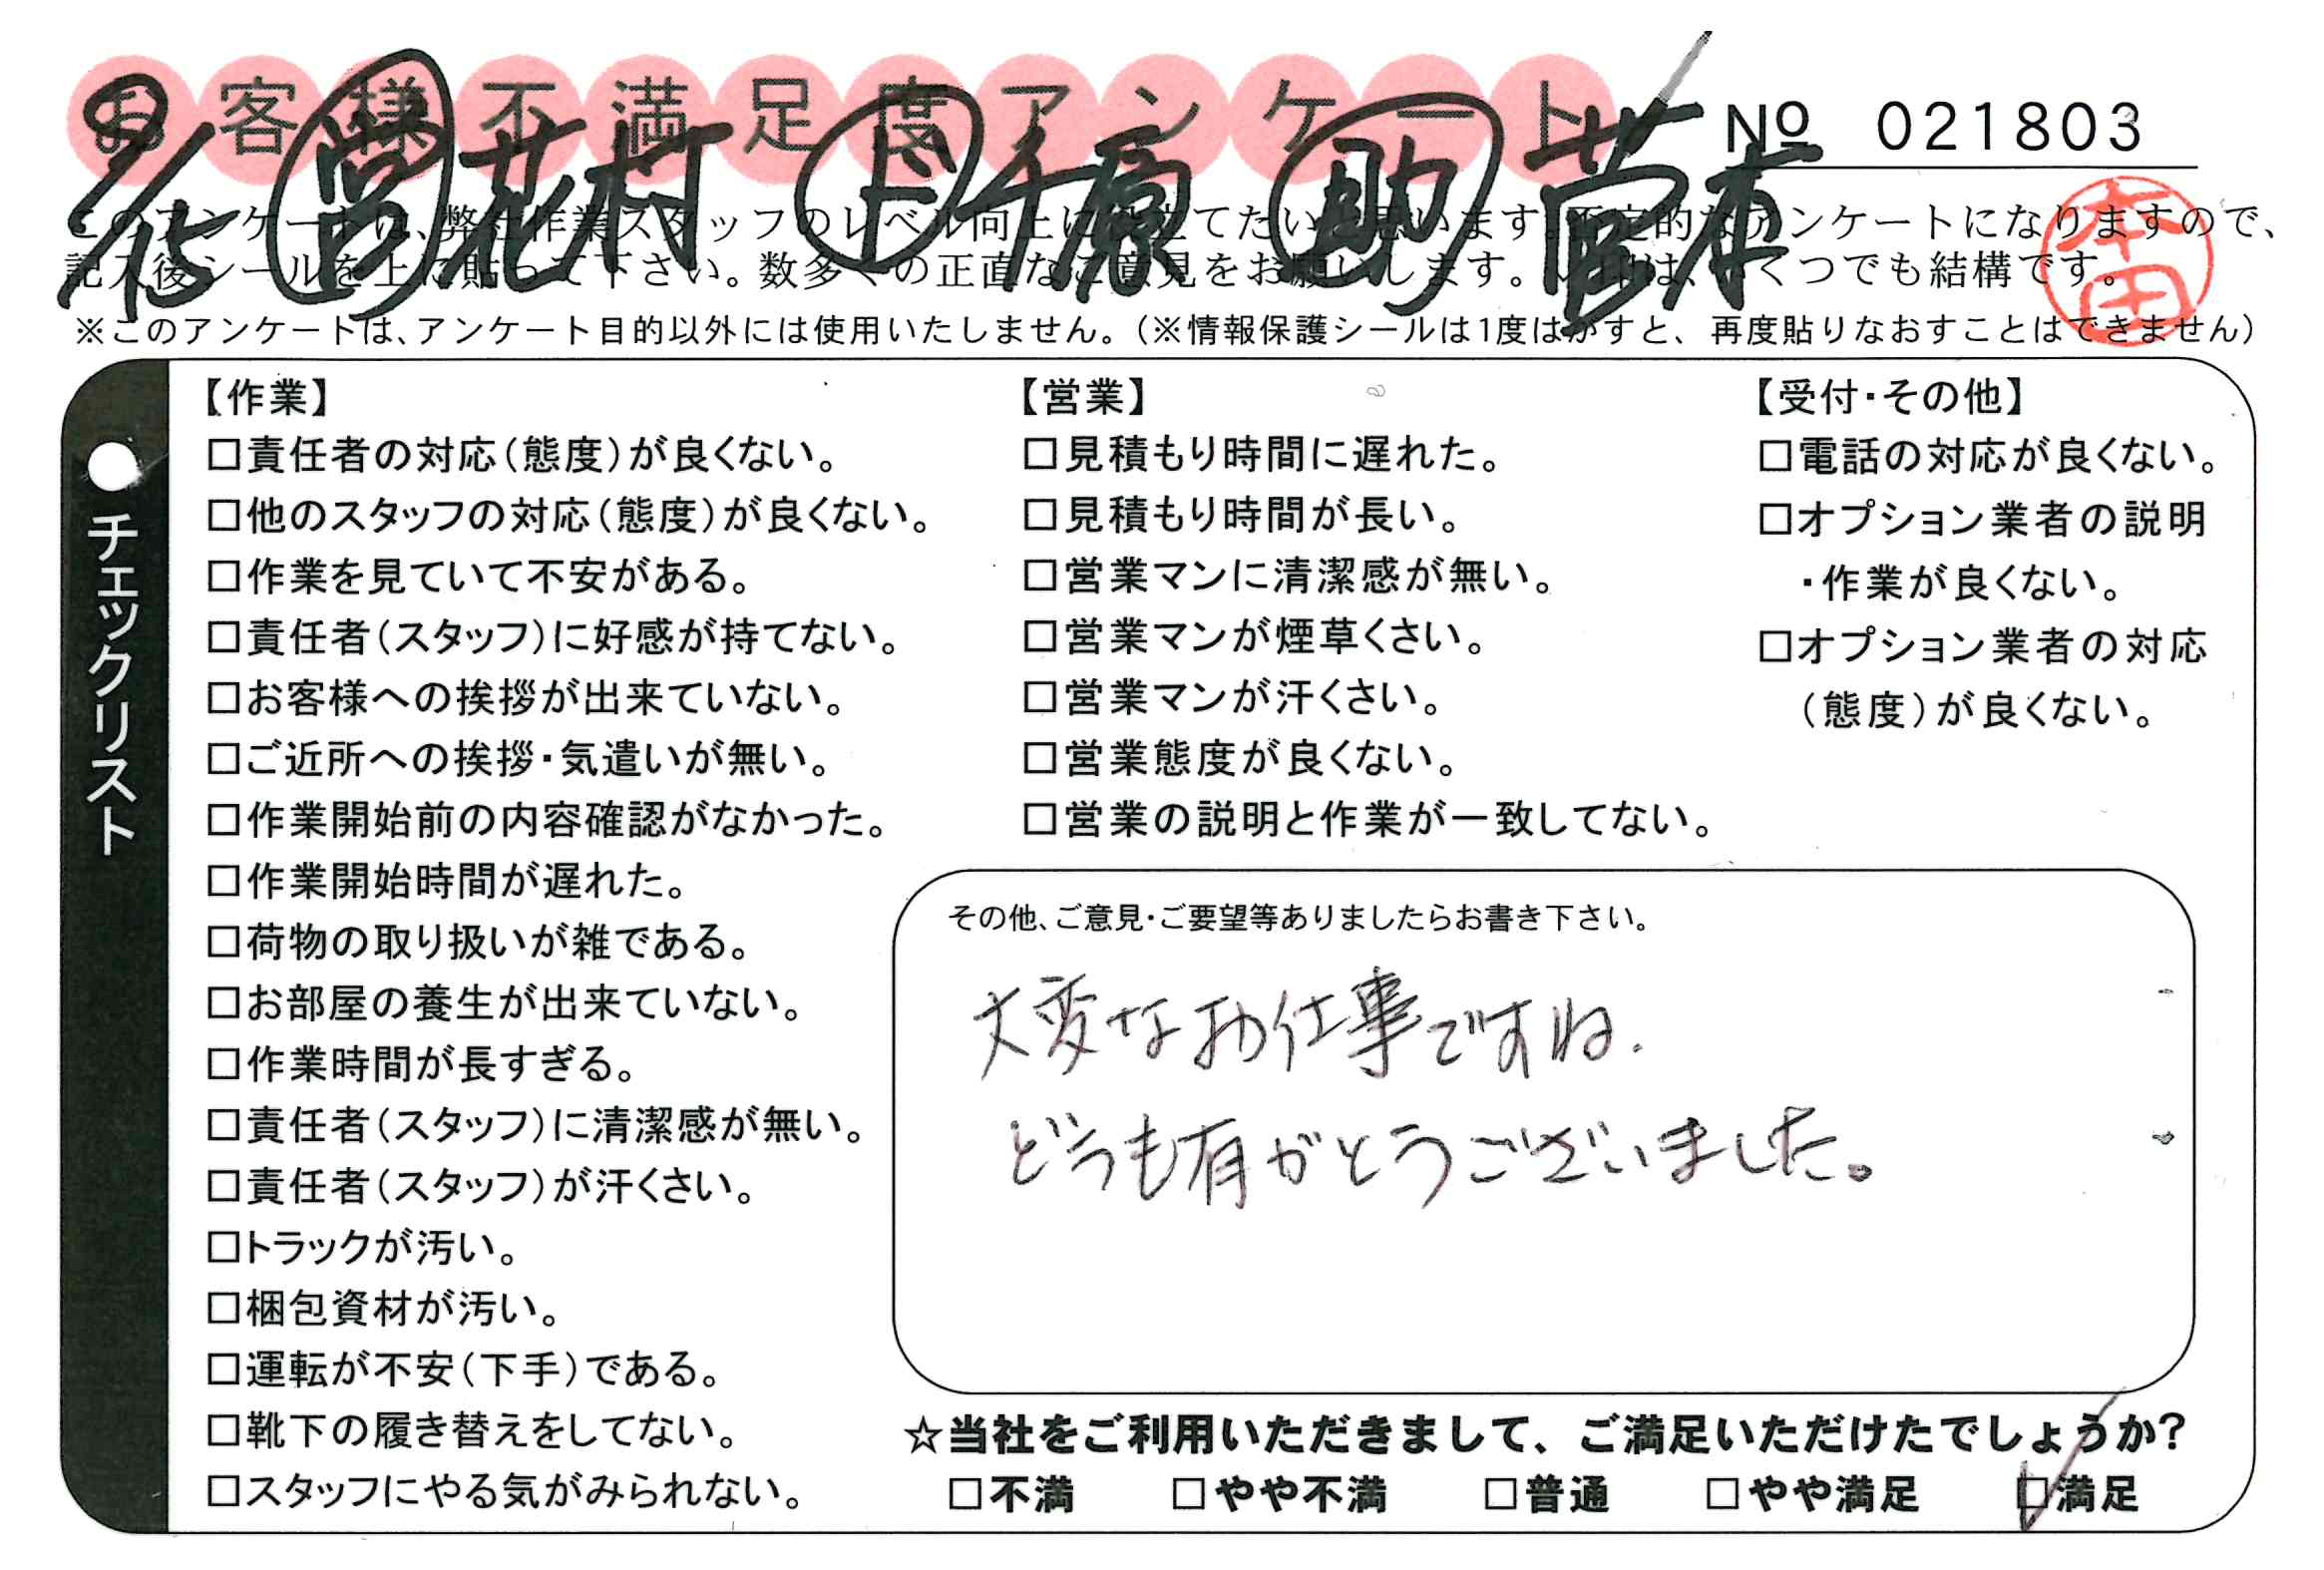 お客様不満足度アンケート
№ 021803
8/15 営 花村 ド 千原 助 菅本
このアンケートは、弊社作業スタッフのレベル向上に役立てたいと思います。否定的なアンケートになりますので、
記入後シールを上に貼って下さい。数多くの正直なご意見をお願いします。
いくつでも結構です。
本田
※このアンケートは、アンケート目的以外には使用いたしません。（※情報保護シールは1度はがすと、再度貼りなおすことはできません）
●チェックリスト
【作業】
□責任者の対応（態度）が良くない。
□他のスタッフの対応（態度）が良くない。
□作業を見ていて不安がある。
□責任者（スタッフ）に好感が持てない。
□お客様への挨拶が出来ていない。
□ご近所への挨拶・気遣いが無い。
□作業開始前の内容確認がなかった。
□作業開始時間が遅れた。
□荷物の取り扱いが雑である。
□お部屋の養生が出来ていない。
□作業時間が長すぎる。
□責任者（スタッフ）に清潔感が無い。
□責任者（スタッフ）が汗くさい。
□トラックが汚い。
□梱包資材が汚い。
□運転が不安（下手）である。
□靴下の履き替えをしてない。
□スタッフにやる気がみられない。
【営業】
□見積もり時間に遅れた。
□見積もり時間が長い。
□営業マンに清潔感が無い。
□営業マンが煙草くさい。
□営業マンが汗くさい。
□営業態度が良くない。
□営業の説明と作業が一致してない。
【受付・その他】
□電話の対応が良くない。
□オプション業者の説明
・作業が良くない。
□オプション業者の対応
（態度）が良くない。
その他、ご意見・ご要望等ありましたらお書き下さい。
大変なお仕事ですね.
どうも有がとうございました。
☆当社をご利用いただきまして、ご満足いただけたでしょうか？
□不満 □やや不満 □普通 □やや満足 ☑満足